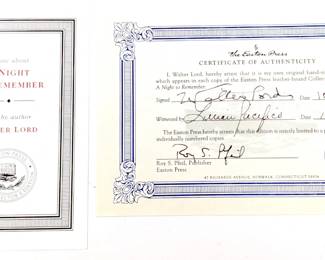 about
NIGHT
REMEMBER
the author
ER LORD
the Easton Press
CERTIFICATE OF AUTHENTICITY
I, Walter Lord, hereby attest that it is my own original hand-si
which appears in each copy of the Easton Press leather-bound Collec
A Night to Remember.
Signed Walter Lord Date
Witnessed by Date
The Easton Press hereby attests that this edition is strictly limited to
individually numbered copies.
Roy S. Pfeil
Roy S. Pfeil, Publisher
Easton Press
47 RICHARDS AVENUE, NORWALK, CONNECTICUT 06856